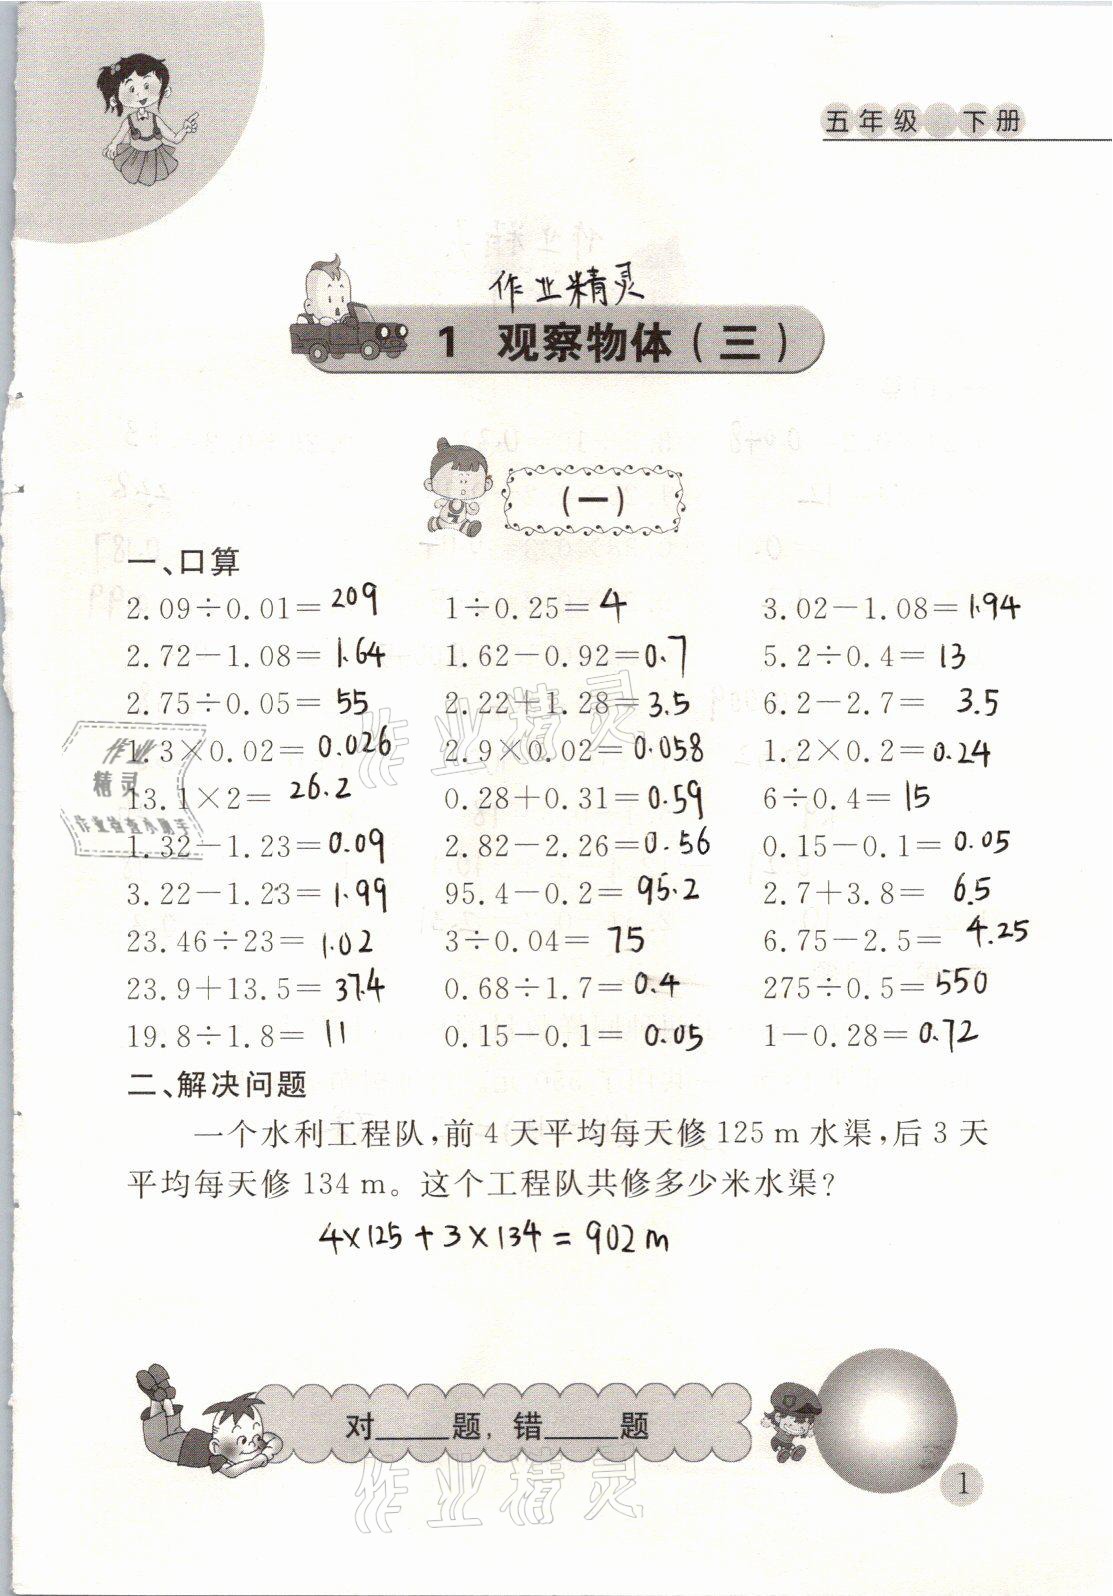 五年级 下册
作业精灵
1 观察物体（三）
（一）
一、口算
2.09÷0.01= 209 1÷0.25= 4 3.02-1.08= 1.94
2.72-1.08= 1.64 1.62-0.92= 0.7 5.2÷0.4= 13
2.75÷0.05= 55 2.22+1.28= 3.5 6.2-2.7= 3.5
1.3×0.02= 0.026 2.9×0.02= 0.058 1.2×0.2= 0.24
13.1×2= 26.2 0.28+0.31= 0.59 6÷0.4= 15
1.32-1.23= 0.09 2.82-2.26= 0.56 0.15-0.1= 0.05
3.22-1.23= 1.99 95.4-0.2= 95.2 2.7+3.8= 6.5
23.46÷23= 1.02 3÷0.04= 75 6.75-2.5= 4.25
23.9+13.5= 37.4 0.68÷1.7= 0.4 275÷0.5= 550
19.8÷1.8= 11 0.15-0.1= 0.05 1-0.28= 0.72
二、解决问题
一个水利工程队，前 4 天平均每天修 125 m 水渠，后 3 天
平均每天修 134 m。这个工程队共修多少米水渠？
4×125+3×134=902m
对____题，错____题
1
作业精灵
作业精灵
作业
精灵
作业检查小助手